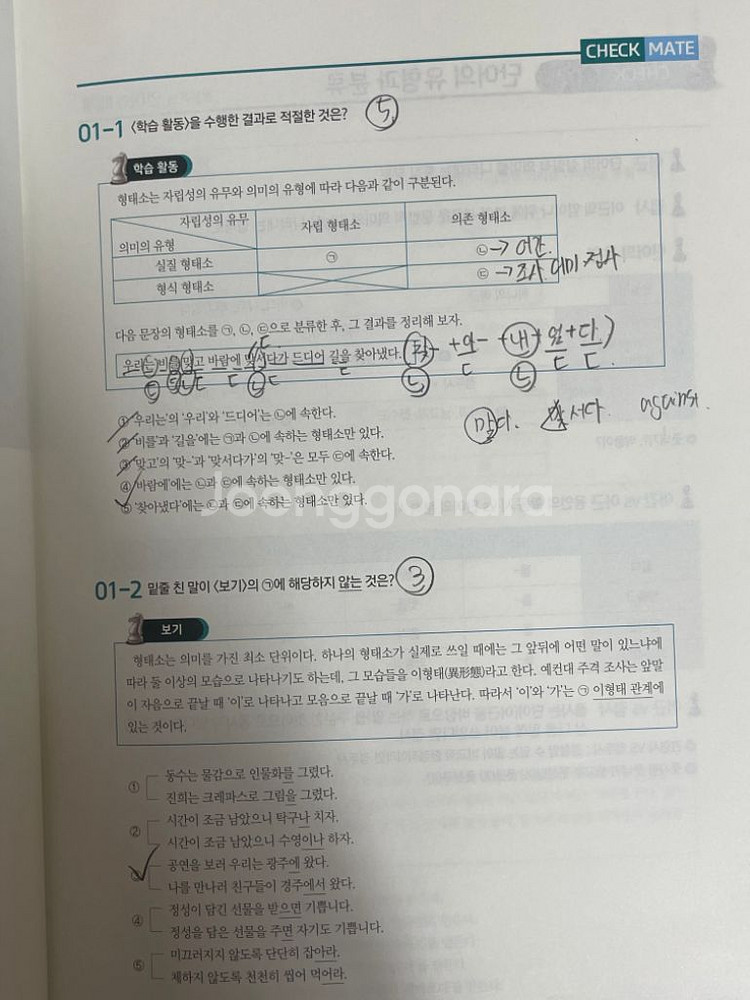 CHECK MATE
01-1 <학습 활동>을 수행한 결과로 적절한 것은? ⑤
학습 활동
형태소는 자립성의 유무와 의미의 유형에 따라 다음과 같이 구분된다.
자립성의 유무
의미의 유형
자립 형태소
의존 형태소
실질 형태소
㉠
㉡ → 어간
형식 형태소
㉢ → 조사, 어미, 접사
다음 문장의 형태소를 ㉠, ㉡, ㉢으로 분류한 후, 그 결과를 정리해 보자.
우리는 비를 맞고 바람에 맞서다가 드디어 길을 찾아냈다.
① '우리는'의 '우리'와 '드디어'는 ㉡에 속한다.
② '비를'과 '길을'에는 ㉠과 ㉡에 속하는 형태소만 있다.
③ '맞고'의 '맞-'과 '맞서다가'의 '맞-'은 모두 ㉢에 속한다.
④ '바람에'에는 ㉡과 ㉢에 속하는 형태소만 있다.
⑤ '찾아냈다'에는 ㉡과 ㉢에 속하는 형태소만 있다.
against.
Joonggonara
01-2 밑줄 친 말이 <보기>의 ㉠에 해당하지 않는 것은? ③
보기
형태소는 의미를 가진 최소 단위이다. 하나의 형태소가 실제로 쓰일 때에는 그 앞뒤에 어떤 말이 있느냐에
따라 둘 이상의 모습으로 나타나기도 하는데, 그 모습들을 이형태(異形態)라고 한다. 예컨대 주격 조사는 앞말
이 자음으로 끝날 때 '이'로 나타나고 모음으로 끝날 때 '가'로 나타난다. 따라서 '이'와 '가'는 ㉠ 이형태 관계에
있는 것이다.
① 동수는 물감으로 인물화를 그렸다.
진희는 크레파스로 그림을 그렸다.
② 시간이 조금 남았으니 탁구나 치자.
시간이 조금 남았으니 수영이나 하자.
③ 공연을 보러 우리는 광주에 왔다.
나를 만나러 친구들이 경주에서 왔다.
④ 정성이 담긴 선물을 받으면 기쁩니다.
정성을 담은 선물을 주면 자기도 기쁩니다.
⑤ 미끄러지지 않도록 단단히 잡아라.
체하지 않도록 천천히 씹어 먹어라.